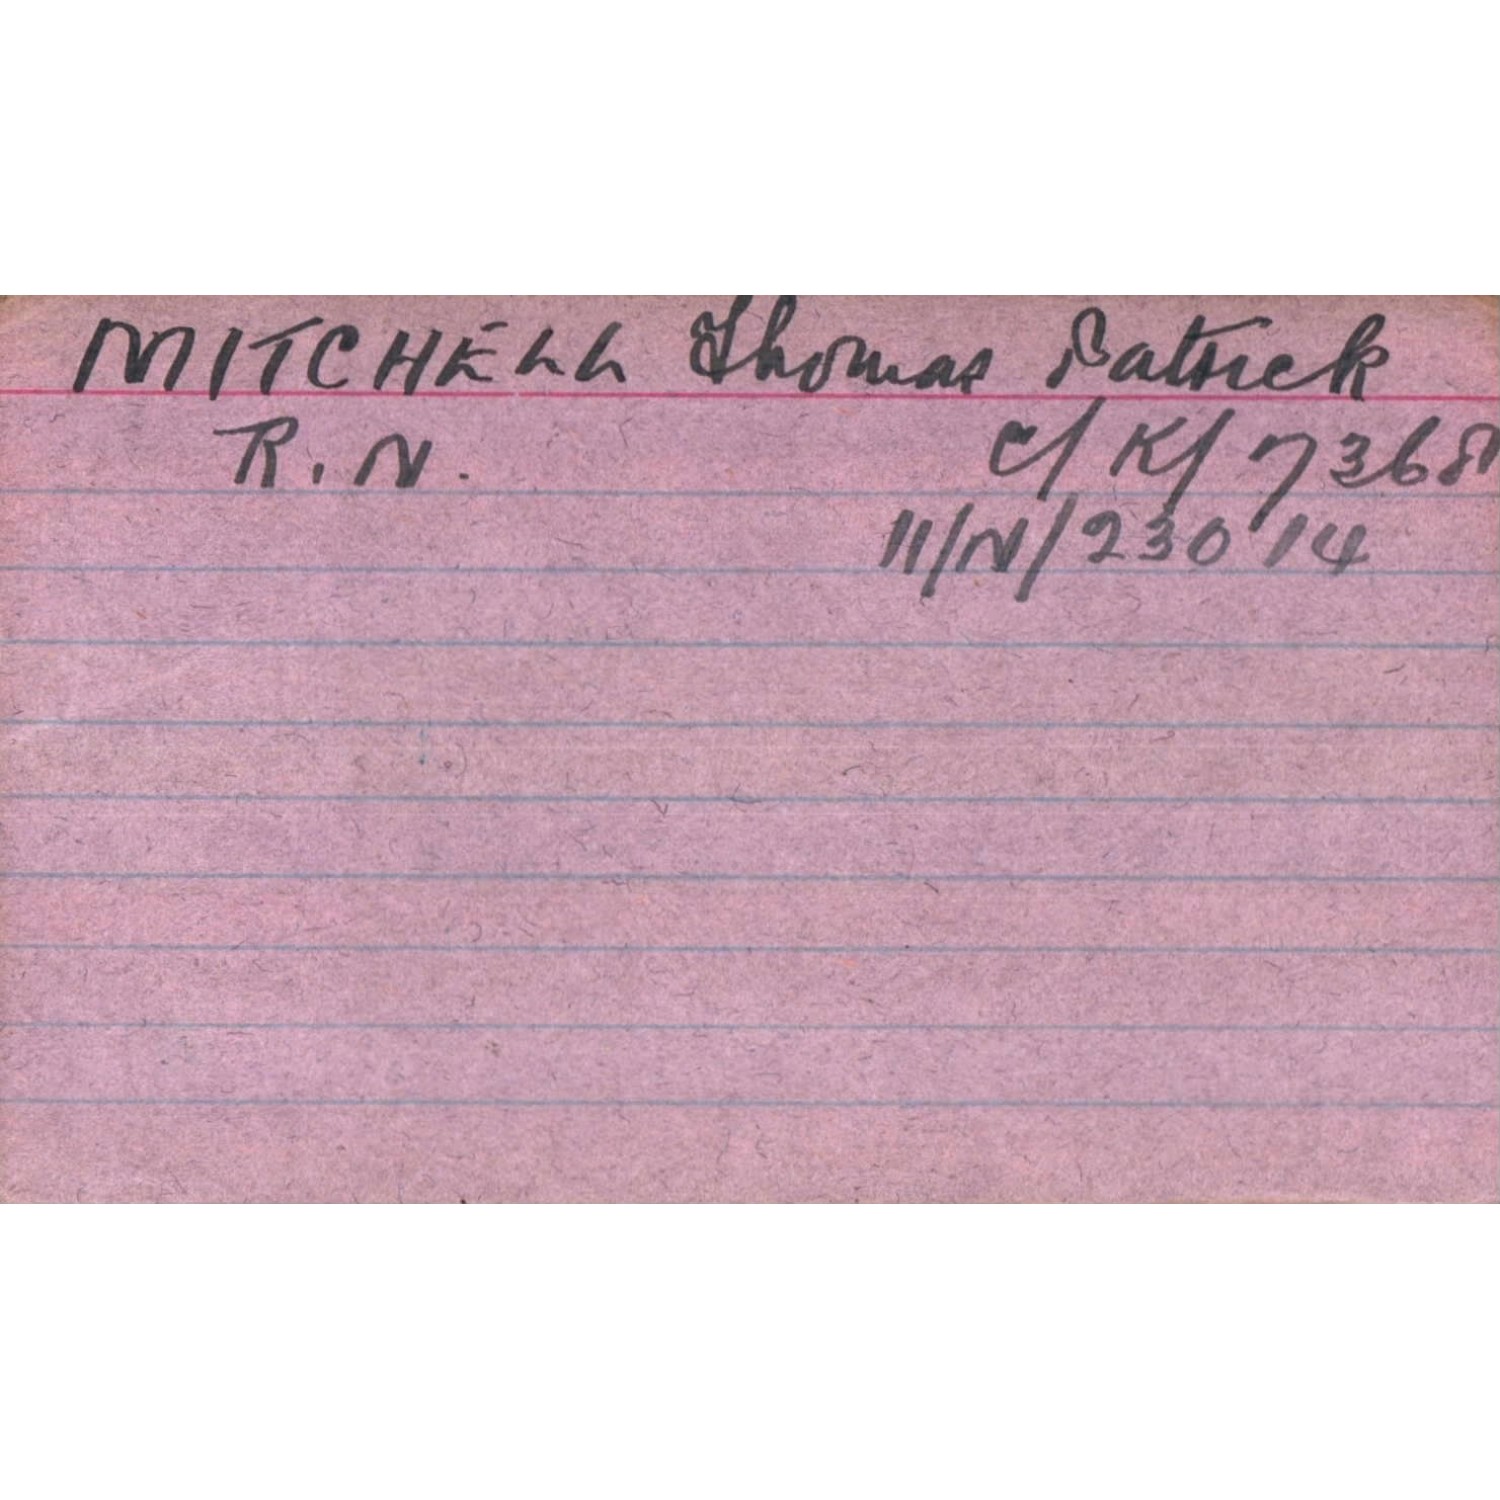 MITCHELL Thomas Patrick
R.N. C/K/7368
11/N/23014